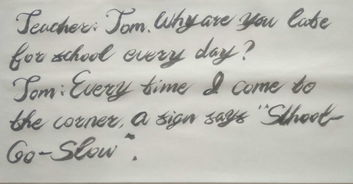 Teacher: Tom. Why are you late
for school every day?
Tom: Every time I come to
the corner, a sign says "School-
Go-Slow".